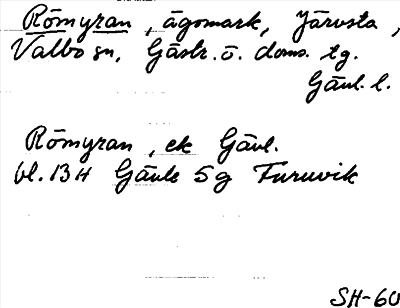 Römyran, ägomark, Järvsta,
Valbo sn, Gästr. ö. doms. tg.
Gävl. l.
Römyran, ek Gävl.
bl. 13H Gävle 5g Furuvik
SH-60